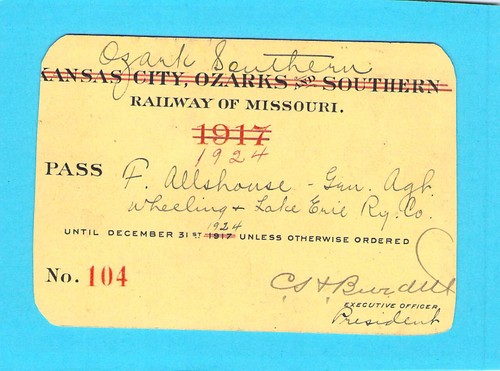 Ozark Southern
KANSAS CITY, OZARKS AND SOUTHERN
RAILWAY OF MISSOURI.
1917
1924
PASS F. Allshouse - Gen. Agt.
Wheeling & Lake Erie Ry. Co.
1924
UNTIL DECEMBER 31ST 1917 UNLESS OTHERWISE ORDERED
No. 104
EXECUTIVE OFFICER
President